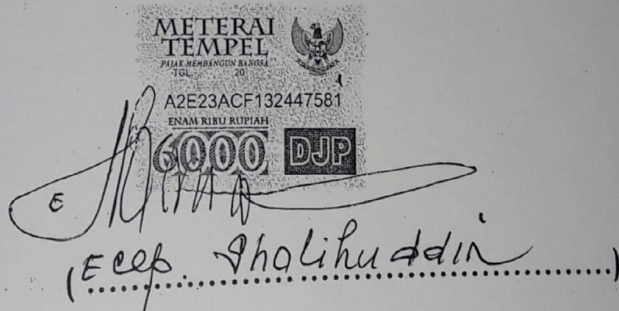 METERAI
TEMPEL
PAJAK MEMBANGUN BANGSA
TGL. 20
A2E23ACF132447581
ENAM RIBU RUPIAH
6000 DJP
E
(Ecep. Sholihuddin)